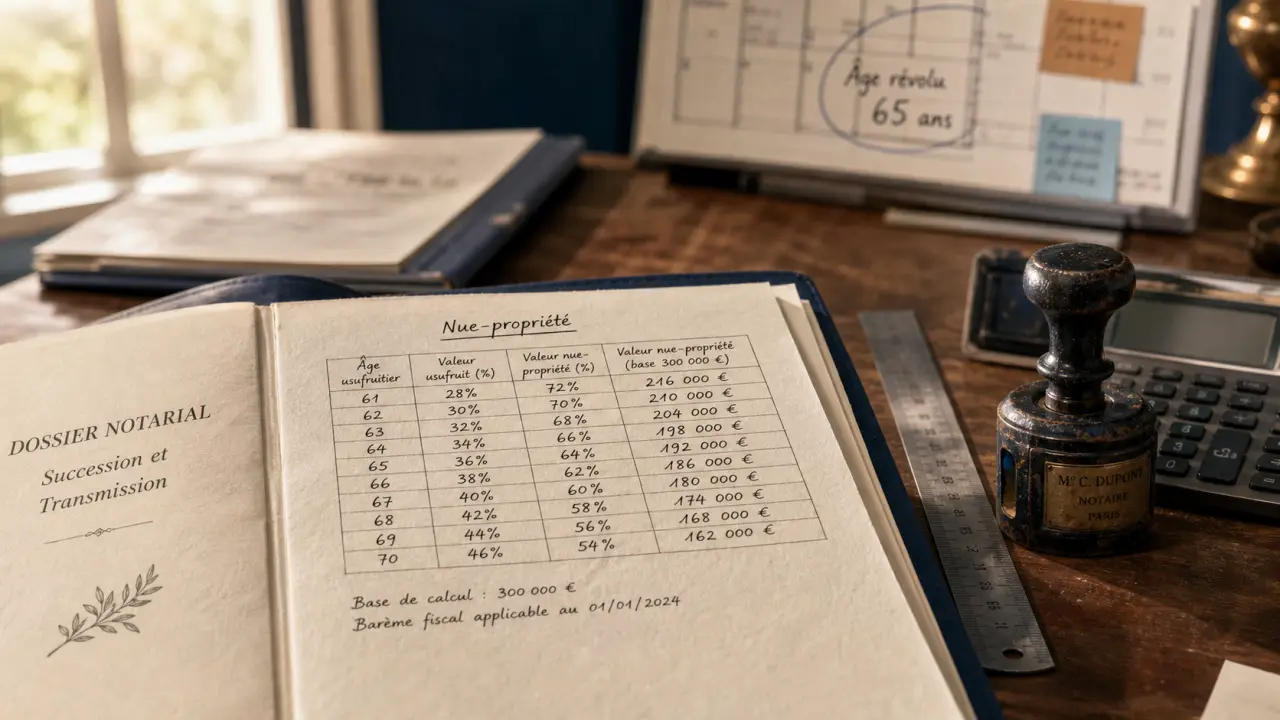 Âge révolu
65 ans
DOSSIER NOTARIAL
Succession et
Transmission
Nue-propriété
Âge usufruitier | Valeur usufruit (%) | Valeur nue-propriété (%) | Valeur nue-propriété (base 300 000 €)
61 | 28% | 72% | 216 000 €
62 | 30% | 70% | 210 000 €
63 | 32% | 68% | 204 000 €
64 | 34% | 66% | 198 000 €
65 | 36% | 64% | 192 000 €
66 | 38% | 62% | 186 000 €
67 | 40% | 60% | 180 000 €
68 | 42% | 58% | 174 000 €
69 | 44% | 56% | 168 000 €
70 | 46% | 54% | 162 000 €
Base de calcul : 300 000 €
Barème fiscal applicable au 01/01/2024
Mᵉ C. DUPONT
NOTAIRE
PARIS